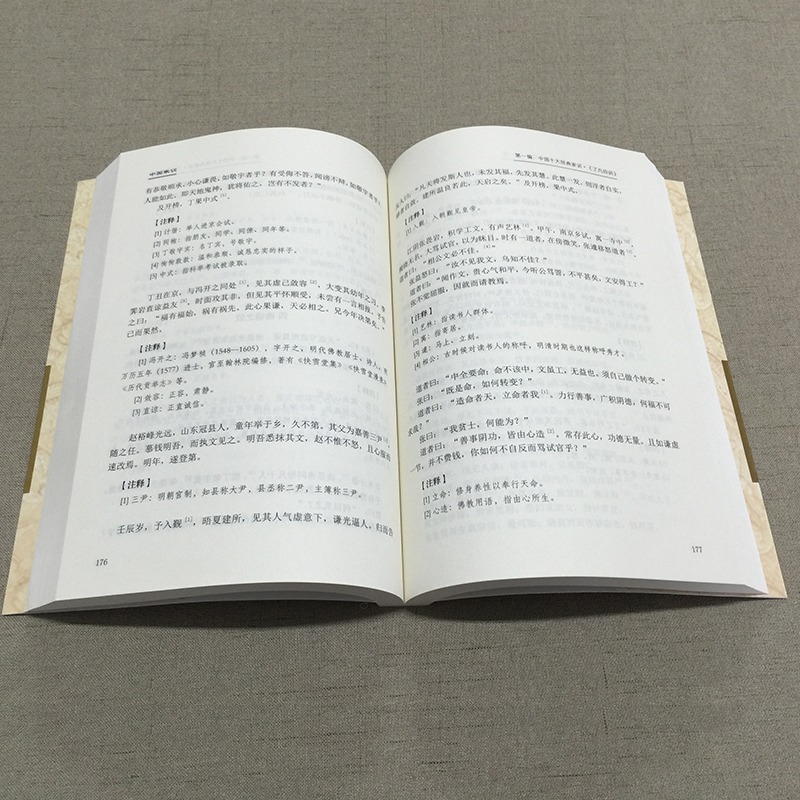 中国家训
有恭敬顺承，小心谦畏，如敬宇者乎？有受侮不答，闻谤不辩，如敬宇者乎？
人能如此，即天地鬼神，犹将佑之，岂有不发者？
及开榜，丁果中式[5]。
【注释】
[1] 计偕：举人进京会试。
[2] 同袍：指朋友、同学、同僚、同年等。
[3] 丁敬宇宾：名丁宾，号敬宇。
[4] 恂恂款款：温和恭顺、诚恳忠实的样子。
[5] 中式：指科举考试被录取。
丁丑在京，与冯开之同处[1]，见其虚己敛容[2]，大变其幼年之习。李
霁岩直谅益友[3]，时面攻其非，但见其平怀顺受，未尝有一言相报。予告
之曰：“福有福始，祸有祸先，此心果谦，天必相之，兄今年决第矣。”
已而果然。
【注释】
[1] 冯开之：冯梦桢（1548—1605），字开之，明代佛教居士，诗人，
万历五年（1577）进士，官至翰林院编修，著有《快雪堂集》《快雪堂漫录》
《历代贡举志》等。
[2] 敛容：正容，肃静。
[3] 直谅：正直诚信。
赵裕峰光远，山东冠县人，童年举于乡，久不第。其父为嘉善三尹[1]，
随之任。慕钱明吾，而执文见之。明吾悉抹其文，赵不惟不怒，且心服而
速改焉。明年，遂登第。
【注释】
[1] 三尹：明朝官制，知县称大尹，县丞称二尹，主簿称三尹。
壬辰岁，予入觐[1]，晤夏建所，见其人气虚意下，谦光逼人，归而告
176
第一编 中国十大经典家训·《了凡四训》
友人曰：“凡天将发斯人也，未发其福，先发其慧。此慧一发，则浮者自实，
肆者自敛，建所温良若此，天启之矣。”及开榜，果中式。
【注释】
[1] 入觐：入朝觐见皇帝。
江阴张畏岩，积学工文，有声艺林[1]。甲午，南京乡试，寓一寺中[2]，
揭晓无名，大骂试官，以为眯目。时有一道者，在傍微笑，张遽移怒道者[3]。
道者曰：“相公文必不佳。[4]”
张益怒曰：“汝不见我文，乌知不佳？”
道者曰：“闻作文，贵心气和平，今听公骂詈，不平甚矣，文安得工？”
张不觉屈服，因就而请教焉。
【注释】
[1] 艺林：指读书人群体。
[2] 寓：指寄居。
[3] 遽：马上、立刻。
[4] 相公：古时候对读书人的称呼，明清时期也这样称呼秀才。
道者曰：“中全要命；命不该中，文虽工，无益也。须自己做个转变。”
张曰：“既是命，如何转变？”
道者曰：“造命者天，立命者我[1]，力行善事，广积阴德，何福不可
求哉？”
张曰：“我贫士，何能为？”
道者曰：“善事阴功，皆由心造[2]，常存此心，功德无量。且如谦虚
一节，并不费钱，你如何不自反而骂试官乎？”
【注释】
[1] 立命：修身养性以奉行天命。
[2] 心造：佛教用语，指由心所生。
177